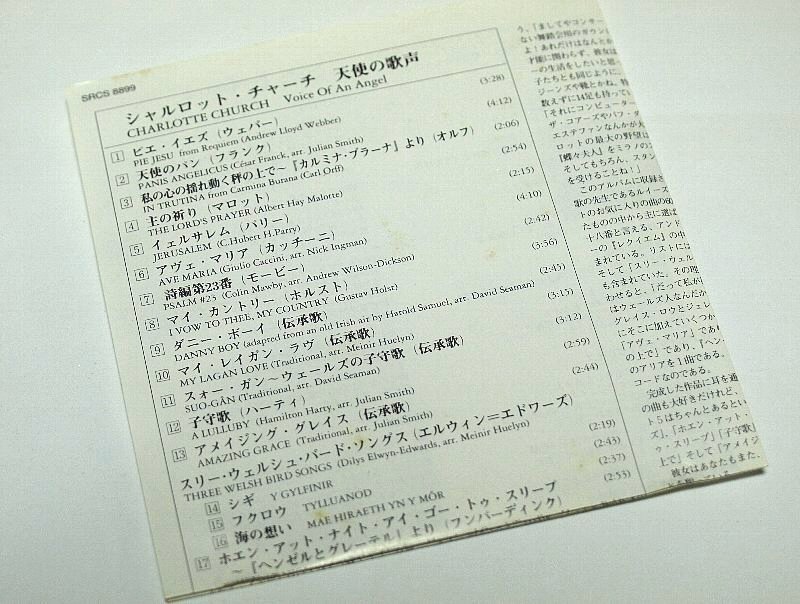 SRCS 8899
シャルロット・チャーチ 天使の歌声
CHARLOTTE CHURCH Voice Of An Angel
1 ピエ・イエズ（ウェバー） (3:28)
PIE JESU from Requiem (Andrew Lloyd Webber)
2 天使のパン（フランク） (4:12)
PANIS ANGELICUS (César Franck, arr. Julian Smith)
3 私の心の揺れ動く秤の上で～『カルミナ・ブラーナ』より（オルフ） (2:06)
IN TRUTINA from Carmina Burana (Carl Orff)
4 主の祈り（マロット） (2:54)
THE LORD'S PRAYER (Albert Hay Malotte)
5 イェルサレム（パリー） (2:15)
JERUSALEM (C.Hubert H.Parry)
6 アヴェ・マリア（カッチーニ） (4:10)
AVE MARIA (Giulio Caccini, arr. Nick Ingman)
7 詩編第23番（モービー） (2:42)
PSALM #23 (Colin Mawby, arr. Andrew Wilson-Dickson)
8 マイ・カントリー（ホルスト） (3:56)
I VOW TO THEE, MY COUNTRY (Gustav Holst)
9 ダニー・ボーイ（伝承歌） (2:45)
DANNY BOY (adapted from an old Irish air by Harold Samuel, arr. David Seaman)
10 マイ・レイガン・ラヴ（伝承歌） (3:15)
MY LAGAN LOVE (Traditional, arr. Meinir Huelyn)
11 スォー・ガン～ウェールズの子守歌（伝承歌） (3:12)
SUO-GÂN (Traditional, arr. David Seaman)
12 子守歌（ハーティ） (2:59)
A LULLUBY (Hamilton Harty, arr. Julian Smith)
13 アメイジング・グレイス（伝承歌） (2:44)
AMAZING GRACE (Traditional, arr. Julian Smith)
スリー・ウェルシュ・バード・ソングス（エルウィン＝エドワーズ）
THREE WELSH BIRD SONGS (Dilys Elwyn-Edwards, arr. Meinir Huelyn)
14 シギ Y GYLFINIR (2:19)
15 フクロウ TYLLUANOD (2:43)
16 海の想い MAE HIRAETH YN Y MÔR (2:37)
17 ホエン・アット・ナイト・アイ・ゴー・トゥ・スリープ (2:53)
～『ヘンゼルとグレーテル』より（フンパーディンク）
う、「ましてやコンサー
ない舞踏会用のガウン
よ！あれだけはなんとか
才能に関わらず、彼女は
一の生活をしたいと思
子たちとも同じように
ジーンズや靴とかね。特
数えずに14足も持ってい
「それにコンピューター
ザ・コアーズやパフ・ダ
エステファンなんかが大
ロットの最大の野望は
『蝶々夫人』をミラノの
そしてもちろん、スタン
を受けることね！」
このアルバムに収録さ
歌の先生であるルイーズ
トのお気に入りの曲の
たものの中から主に選ば
十八番と言える、アンド
ーの『レクイエム』の中
まれている。リストには
そして「スリー・ウェル
も含まれていた。その理
わせると、「だって私が
はウェールズ人なんだか
グレイス・ロウとジェレ
にそこに加えていくつか
「アヴェ・マリア」であり
の上で」であり、『ヘン
のアリアを1曲である。
コードなのである。
完成した作品に耳を通
の曲も大好きだけれど、
ト5はちゃんとあるとい
ズ」、「ホエン・アット・
ゥ・スリープ」「子守歌」
上で」そして「アメイジ
彼女はあなたもまた、